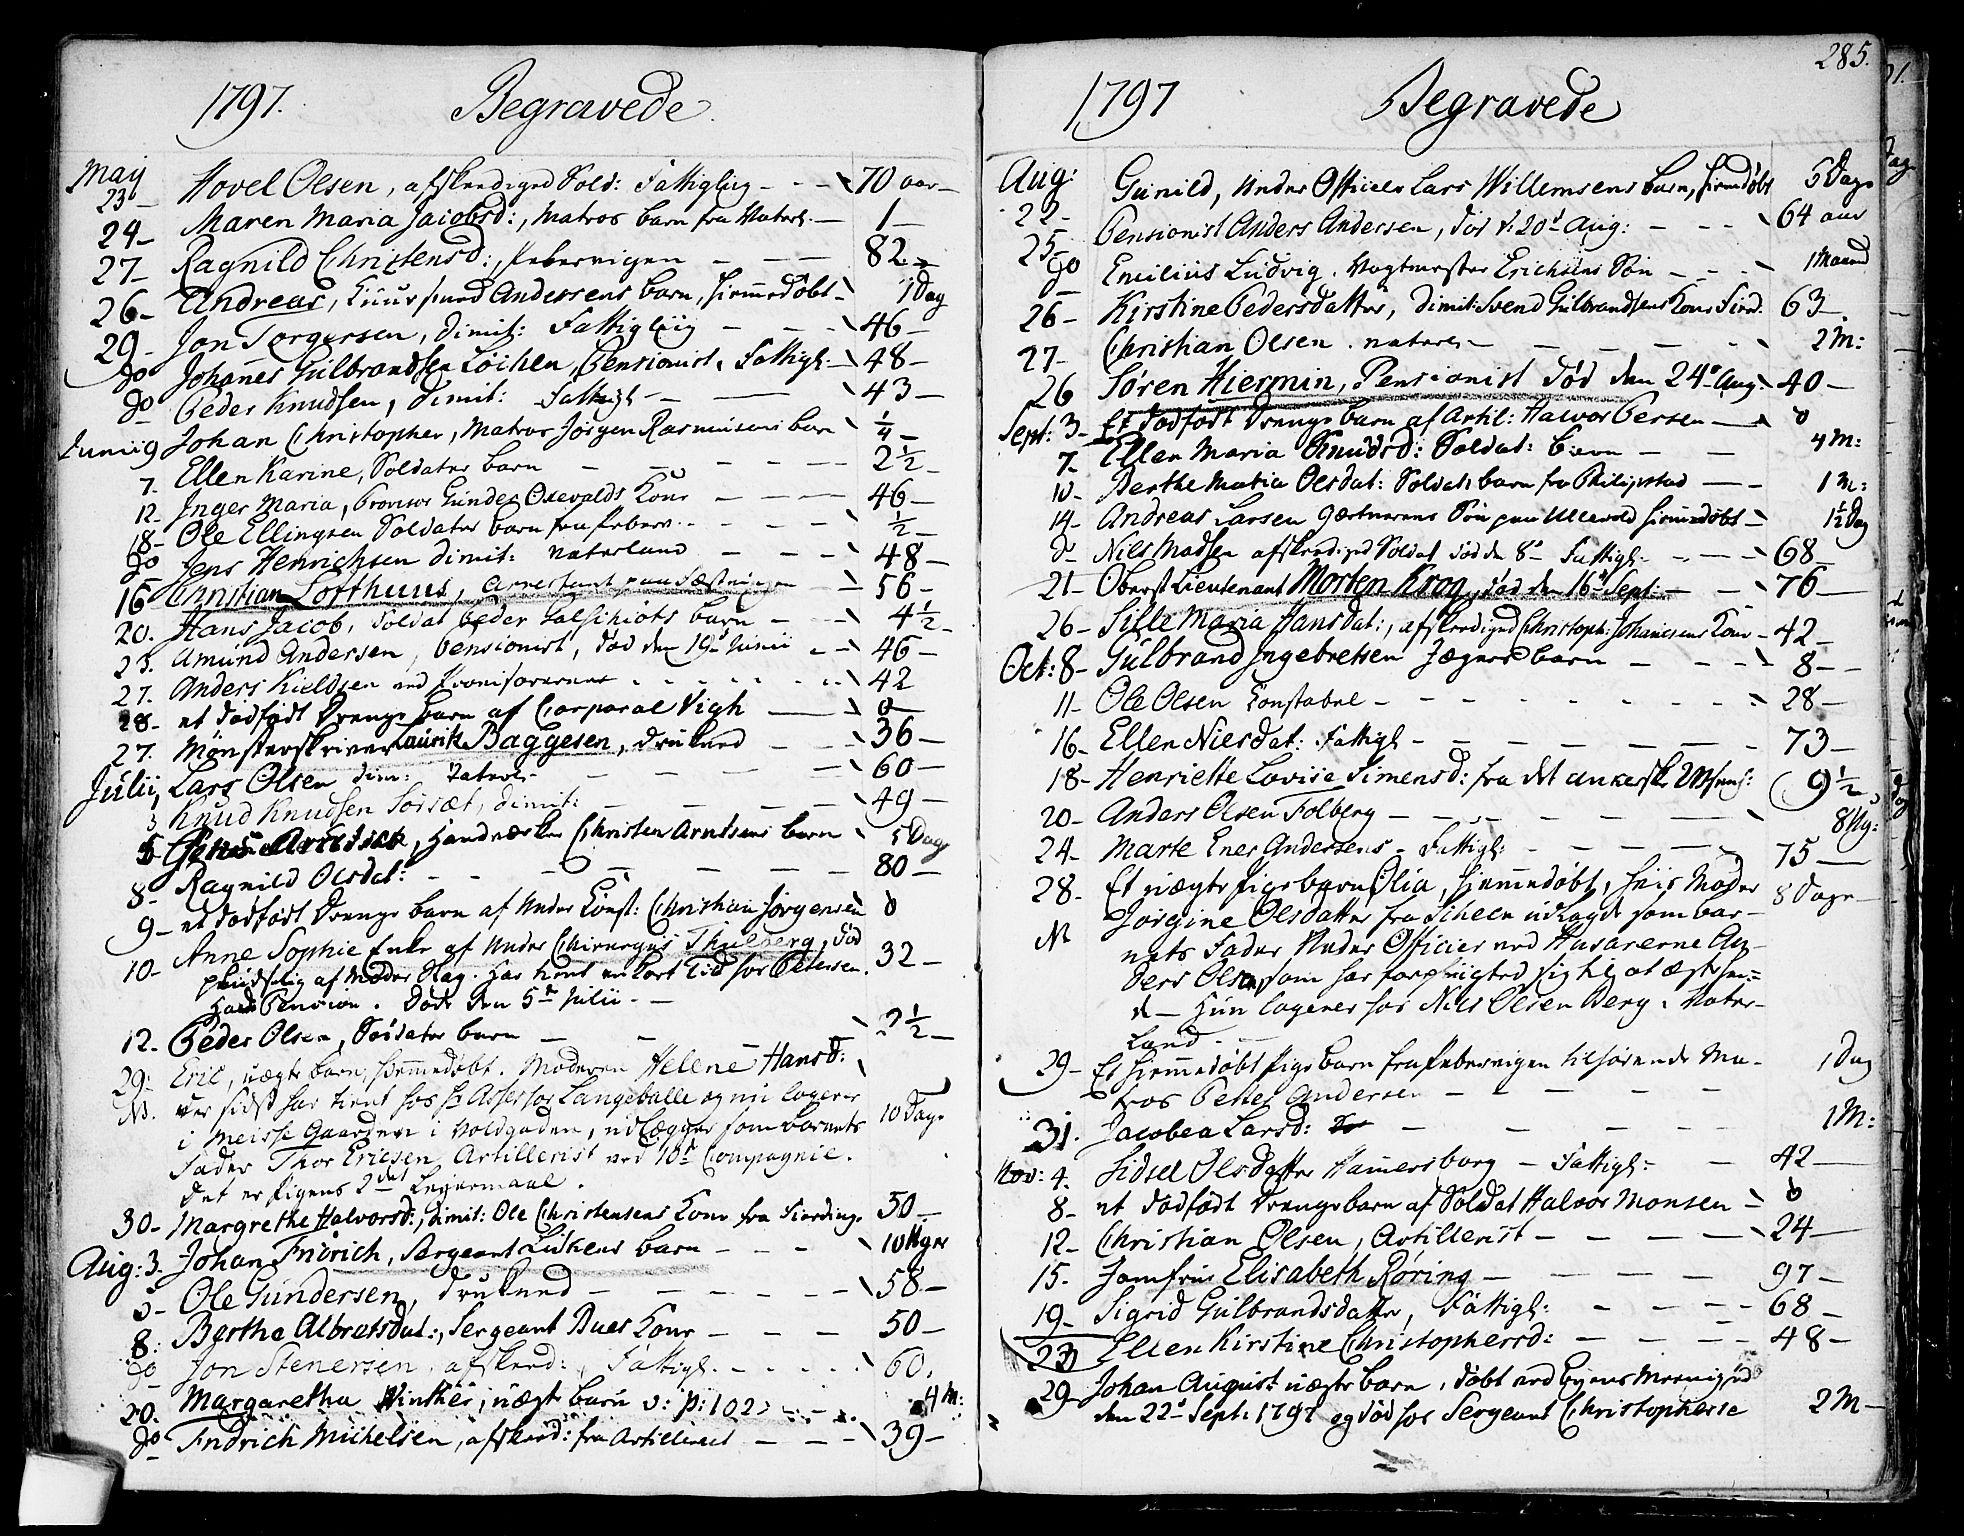 1797. Begravede.
May
23 Hovel Olsen, afskeediged Sold: Fattiglig - - - 70 aar
24- Maren Maria Jacobsd:, Matros barn fra Vaterl. - 1-
27- Ragnild Christensd:, Pebervigen - - - 82 -
26- Andreas, Cuursmed Andersens barn, hiemmedøbt - 1 Dag
29- Jon Torgersen, dimit: Fattiglig - - - 46-
do Johanes Gulbrandsen Løchen, Pensionist, Fattigl. - 48-
do Peder Knudsen, dimit: Fattigl - - 43-
Junii 9 Johan Christopher, Matros Jørgen Rasmusens barn 1/4 -
7. Ellen Karine, Soldater barn - - - 2 1/2 -
12- Inger Maria, Provsor Gunder Osevalds Kone - - - 46-
18- Ole Ellingsen Soldater barn fra Peberv. - - - 1/2 -
do Jens Henrichsen dimit: Vaterland - - - 48-
16- Christian Lofthuus, Arrestant paa Fæstningen - 56-
20. Hans Jacob, Soldat Peder barn - - 4 1/2 -
23. Amund Andersen, Pensionist, død den 19de Junii - - 46-
27. Anders Kieldsen ved - - - 42
28- et dødfødt Drenge barn af Corporal Vigh - 0 -
27. Mønsterskriver Laurik Baggesen, druknd - - 36-
Julii, Lars Olsen dim: Vaterl - - - - 60-
3 Knud Knudsen dimit: - - - 49-
5 Handværker Christen Arntsens barn 5 Dage
8- Ragnild Olsdat: - - - - - - 80-
9- et dødfødt Drenge barn af Under Const: Christian Jørgensen 0
10- Anne Sophie Enke af Under Chirurgus Thueberg, død 32-
pludselig af Moder Slag. Har tient en kort tid hos Petersen.
Havde Pension. Døde den 5te Julii. -
12- Peder Olsen, Soldater barn - - 2 1/2 -
29: Eric, uægte barn, hiemmedøbt. Moderen Helene Hansd:
N. der sidst har tient hos Hr Assessor Langeballe og nu logerer
i Meisse Gaarden i Voldgaden, udlægger som barnets 10 Dage
Fader Thor Ericsen Artillerist ved 10de Compagnie.
Det er Pigens 2det Leyermaal.
30- Margrethe Halvorsd:, dimit: Ole Christensens Kone fra Fierding. 50-
Aug: 3. Johan Fridrich, Sergeant Luskens barn - - - 10 Uger
5- Ole Gundersen, druknd - - - - - 58-
8. Berthe Albretsdat:, Sergeant Dues Kone - - - 50-
do Jon Stenersen, afskeed: Fattigl. - - - - 60.
20. Margaretha Winther, uægte barn v: p: 102. - - - 4 M:
do Fridrich Michelsen, afskeed: fra Artilleriet - - - 39-
285.
1797 Begravede
Aug:
22- Gunild, Under Officeer Lars Willemsens barn, hiemdøbt 5 Dage
25- Pensionist Anders Andersen, død d: 20de Aug: - - - 64 aar
do Emilius Ludvig, Vagtmester Erichsens Søn - - - 1 Maaned
26- Kirstine Pedersdatter, dimit: Svend Gulbrandsens Kone Fierd. 63-
27- Christian Olsen. Vaterl - - - - - 2 M:
26 Søren Hiermin, Pensionist død den 24de Aug. 40-
Sept: 3- Et dødfødt Drenge barn af Artil: Halvor Persen - 0
7- Ellen Maria Knudsd: Soldat: barn - - 4 M:
10- Berthe Maria Olsdat: Soldats barn fra Philipstad - - 1 M:
14- Andreas Larsen Gartnerens Søn paa Ullevold hiemmedøbt - 1 1/2 Dag
d- Niels Madsen afskeediged Soldat død den 8de Fattigl. - - - 68
21- Oberst Lieutenant Morten Krog, død den 16de Sept: - - 76-
26- Sille Maria Hansdat:, afskeediged Christoph: Johanesens Kone - 42-
Oct: 8- Gulbrand Ingebretsen Jægers barn - - - 8-
11- Ole Olsen Constabel - - - - - 28-
16- Ellen Nielsdat: Fattigl - - - - - 73-
18- Henriette Lovise Simensd: fra det ankerske 9 1/2
20- Anders Olsen Folberg - - - - - 8 Ug:
24- Marte Enes Andersens - Fattigl: - - - 75-
28- Et uægte Pigebarn Olia, hiemmedøbt, hvis Moder 8 Dage -
N Jørgine Olsdatter fra Scheen udlagde som bar-
nets Fader Under Officier ved Husarerne An-
ders Olsen, som har forpligted sig til at ægte hen-
de - Hun logerer hos Niels Olsen Berg i Vater-
Land. -
29- Et hiemmedøbt Pige barn fra Pebervigen tilhørende Ma- 1 Dag
tros Petter Andersen - - - -
31. Jacobea Larsd: - - - - 1 M:
Nov: 4. Sidsel Olsdatter Hamersborg - Fattigl: - - 42-
8- et dødfødt Drenge barn af Soldat Halvor Monsen - 0
12- Christian Olsen, Artillerist - - - - 24-
15. Jomfrue Elisabeth Røring - - - - 97-
19- Sigrid Gulbrandsdatter, Fattigl: - - - - 68-
23 Ellen Kirstine Christophersd: - - - - 48-
29- Johan August uægte barn, døbt ved Byens Meenighed
den 22de Sept: 1797 og død hos Sergeant Christophersen 2 M-